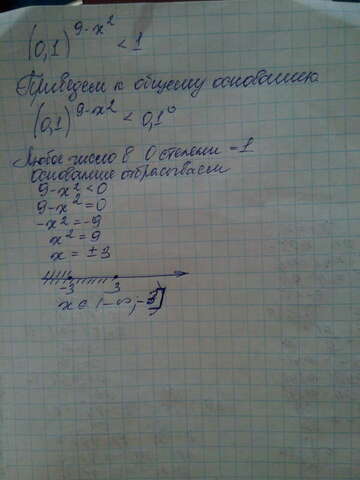 (0,1)^{9-x^2} < 1
Приведем к общему основанию
(0,1)^{9-x^2} < 0,1^0
Любое число в 0 степени = 1
Основание отбрасываем
9-x^2 < 0
9-x^2 = 0
-x^2 = -9
x^2 = 9
x = ±3
-3 3
x ∈ (-∞, -3]